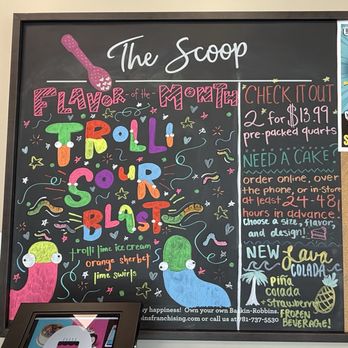 The Scoop
FLAVOR-of the-MONTH
TROLLI
SOUR
BLAST
trolli lime ice cream
orange sherbet
lime swirls
CHECK IT OUT
2 for $13.99
pre-packed quarts
NEED A CAKE?
order online, over
the phone, or in-store
at least 24-48
hours in advance.
Choose a size, flavor,
and design!
NEW Lava
COLADA
Piña
colada
+ strawberry
FROZEN
BEVERAGE!
happiness! Own your own Baskin-Robbins.
nsfranchising.com or call us at 781-737-5530